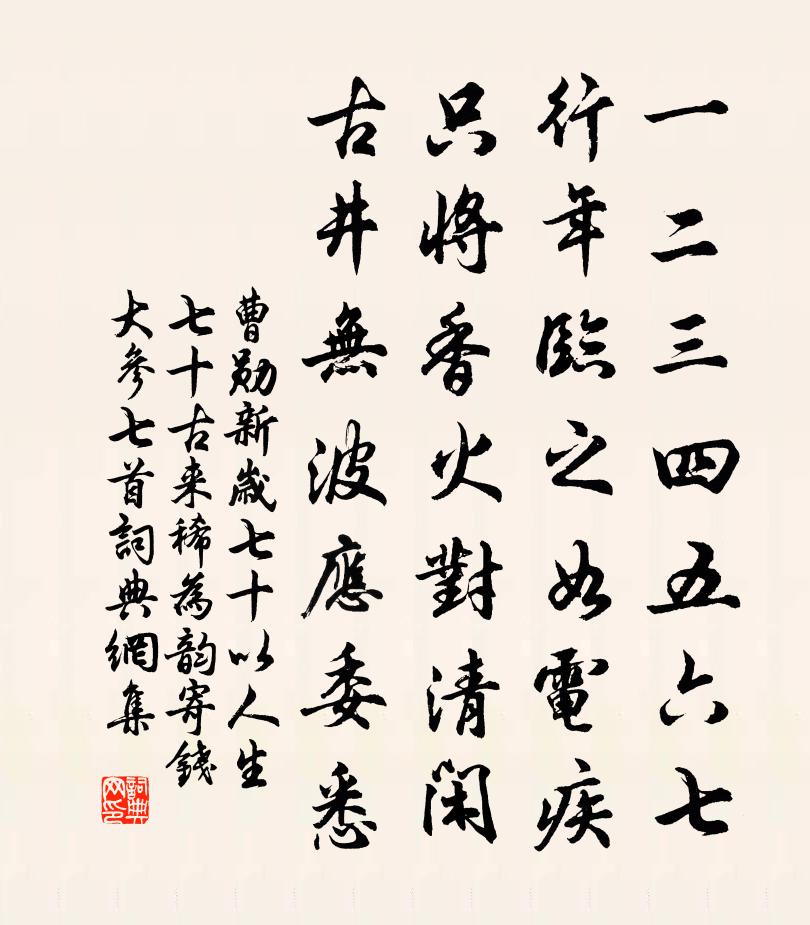 一二三四五六七
行年臨之如電疾
只將香火對清閑
古井無波應委悉
曹勛新歲七十以人生
七十古来稀為韵寄錢
大參七首詞典網集
詞典网印